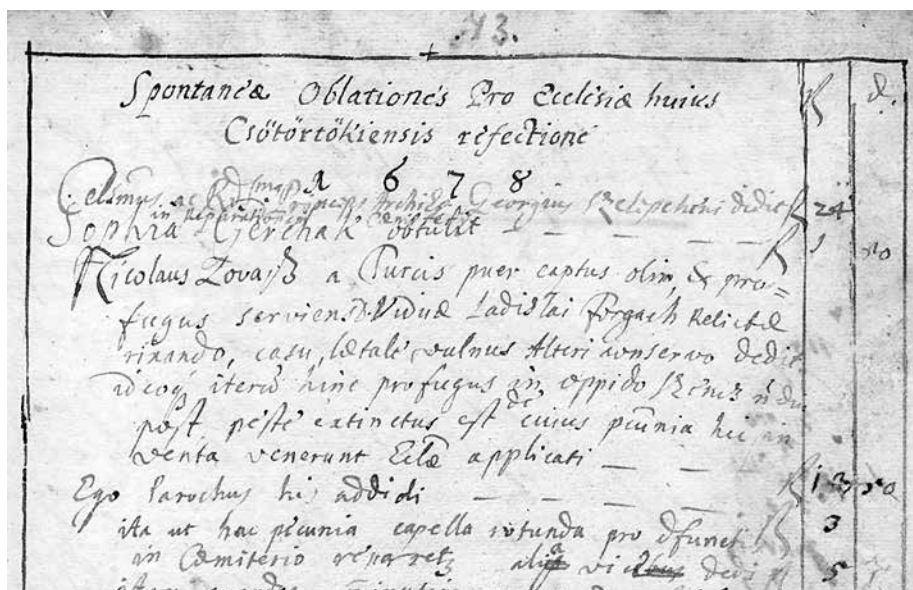 13.
Spontaneæ Oblationes Pro Ecclesiæ huius R d.
Csötörtökiensis refectione
1 6 7 8
Celsmus ac Rdsmus Princeps Archiepp Georgius Szelepcheni dedit R 24
in reparationem
Sophia Gerchak obtulit — — — — — R 1 50
Nicolaus Lovasz a Turcis puer captus olim, & pro=
fugus serviens D. Viduæ Ladislai Forgach Relictæ
rixando, casu, lætale vulnus Alteri conservo dedit
ideoq iterū hinc profugus in oppido
post peste extinctus est de cuius pecūnia hic in
venta venerunt Eclæ applicati — — R 13 50
Ego Parochus his addidi — — — — R 3
ita ut hac pecunia capella rotunda pro dfunct
in Cæmiterio reparretz dedi 5